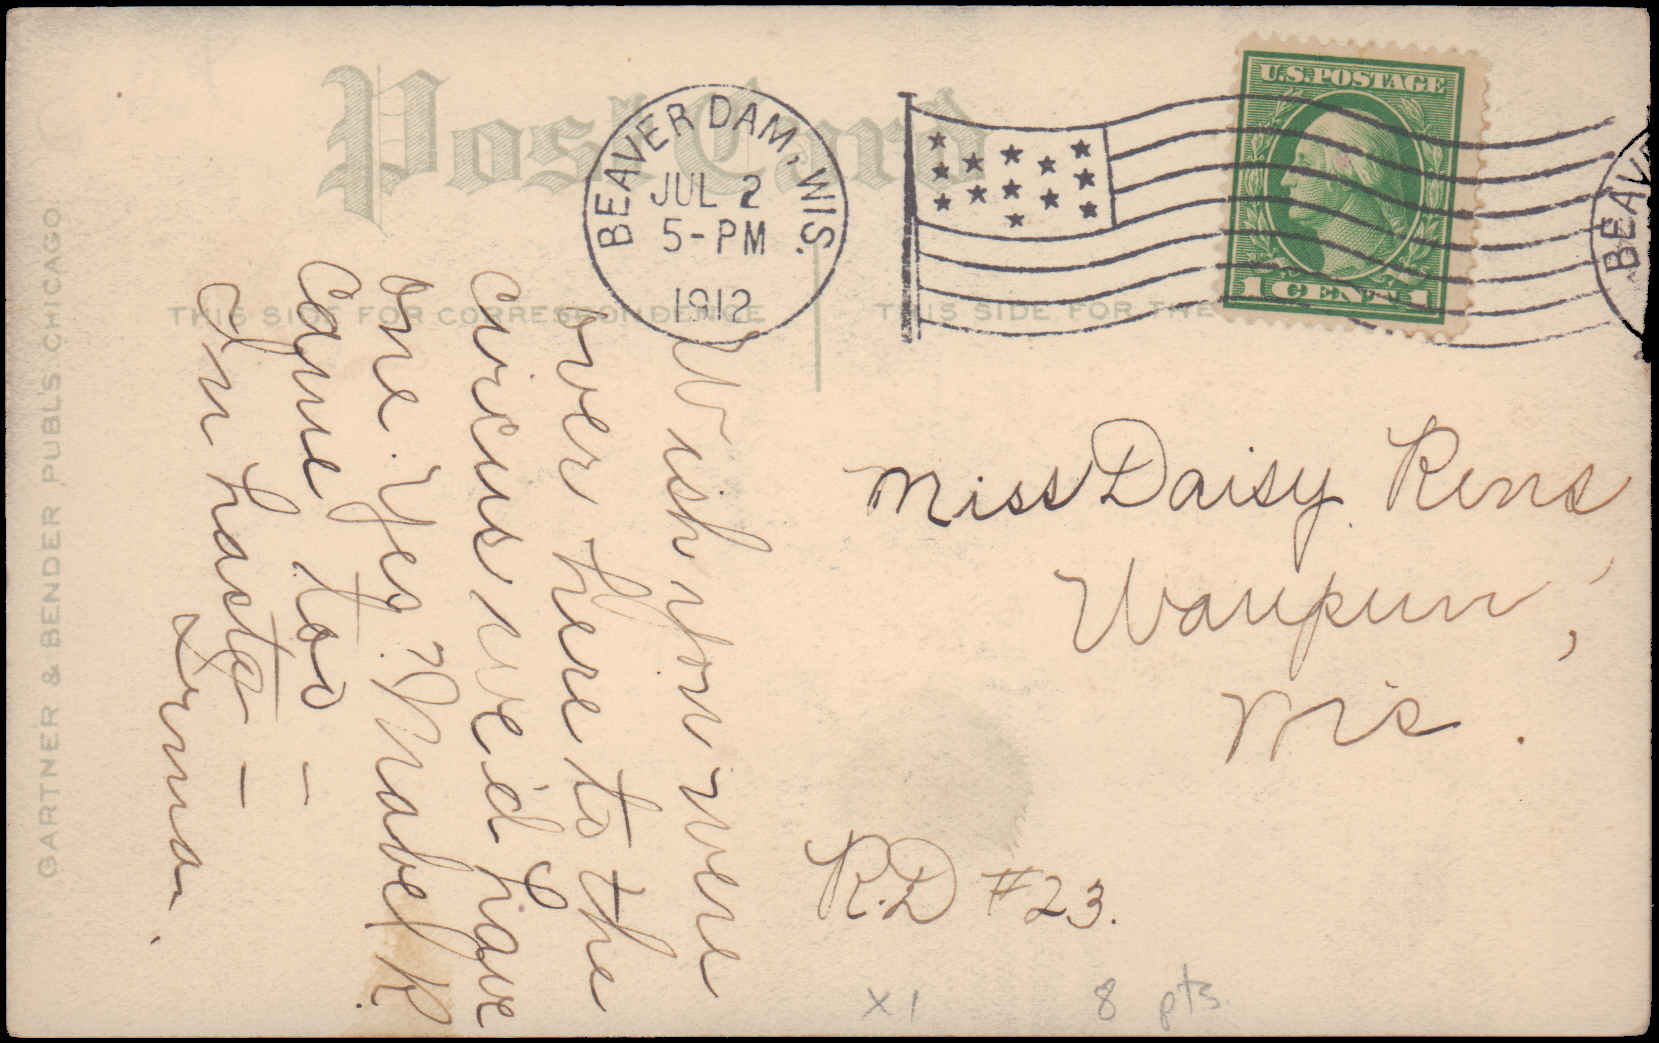 Post Card
BEAVER DAM, WIS.
JUL 2
5-PM
1912
U.S. POSTAGE
1 CENT 1
BEAVE
THIS SIDE FOR CORRESPONDENCE
THIS SIDE FOR THE
GARTNER & BENDER PUBL'S. CHICAGO
Wish you were
over here to the
circus we'd have
one. Yes Mabel K
came too -
In haste -
Irma.
Miss Daisy Rens
Waupun,
Wis.
R.D #23.
x1 8 pts.